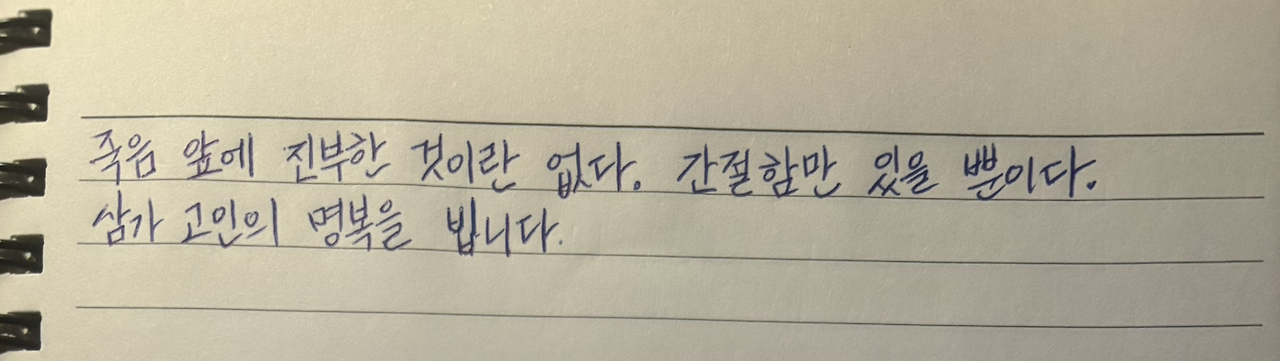 죽음 앞에 진부한 것이란 없다. 간절함만 있을 뿐이다.
삼가 고인의 명복을 빕니다.